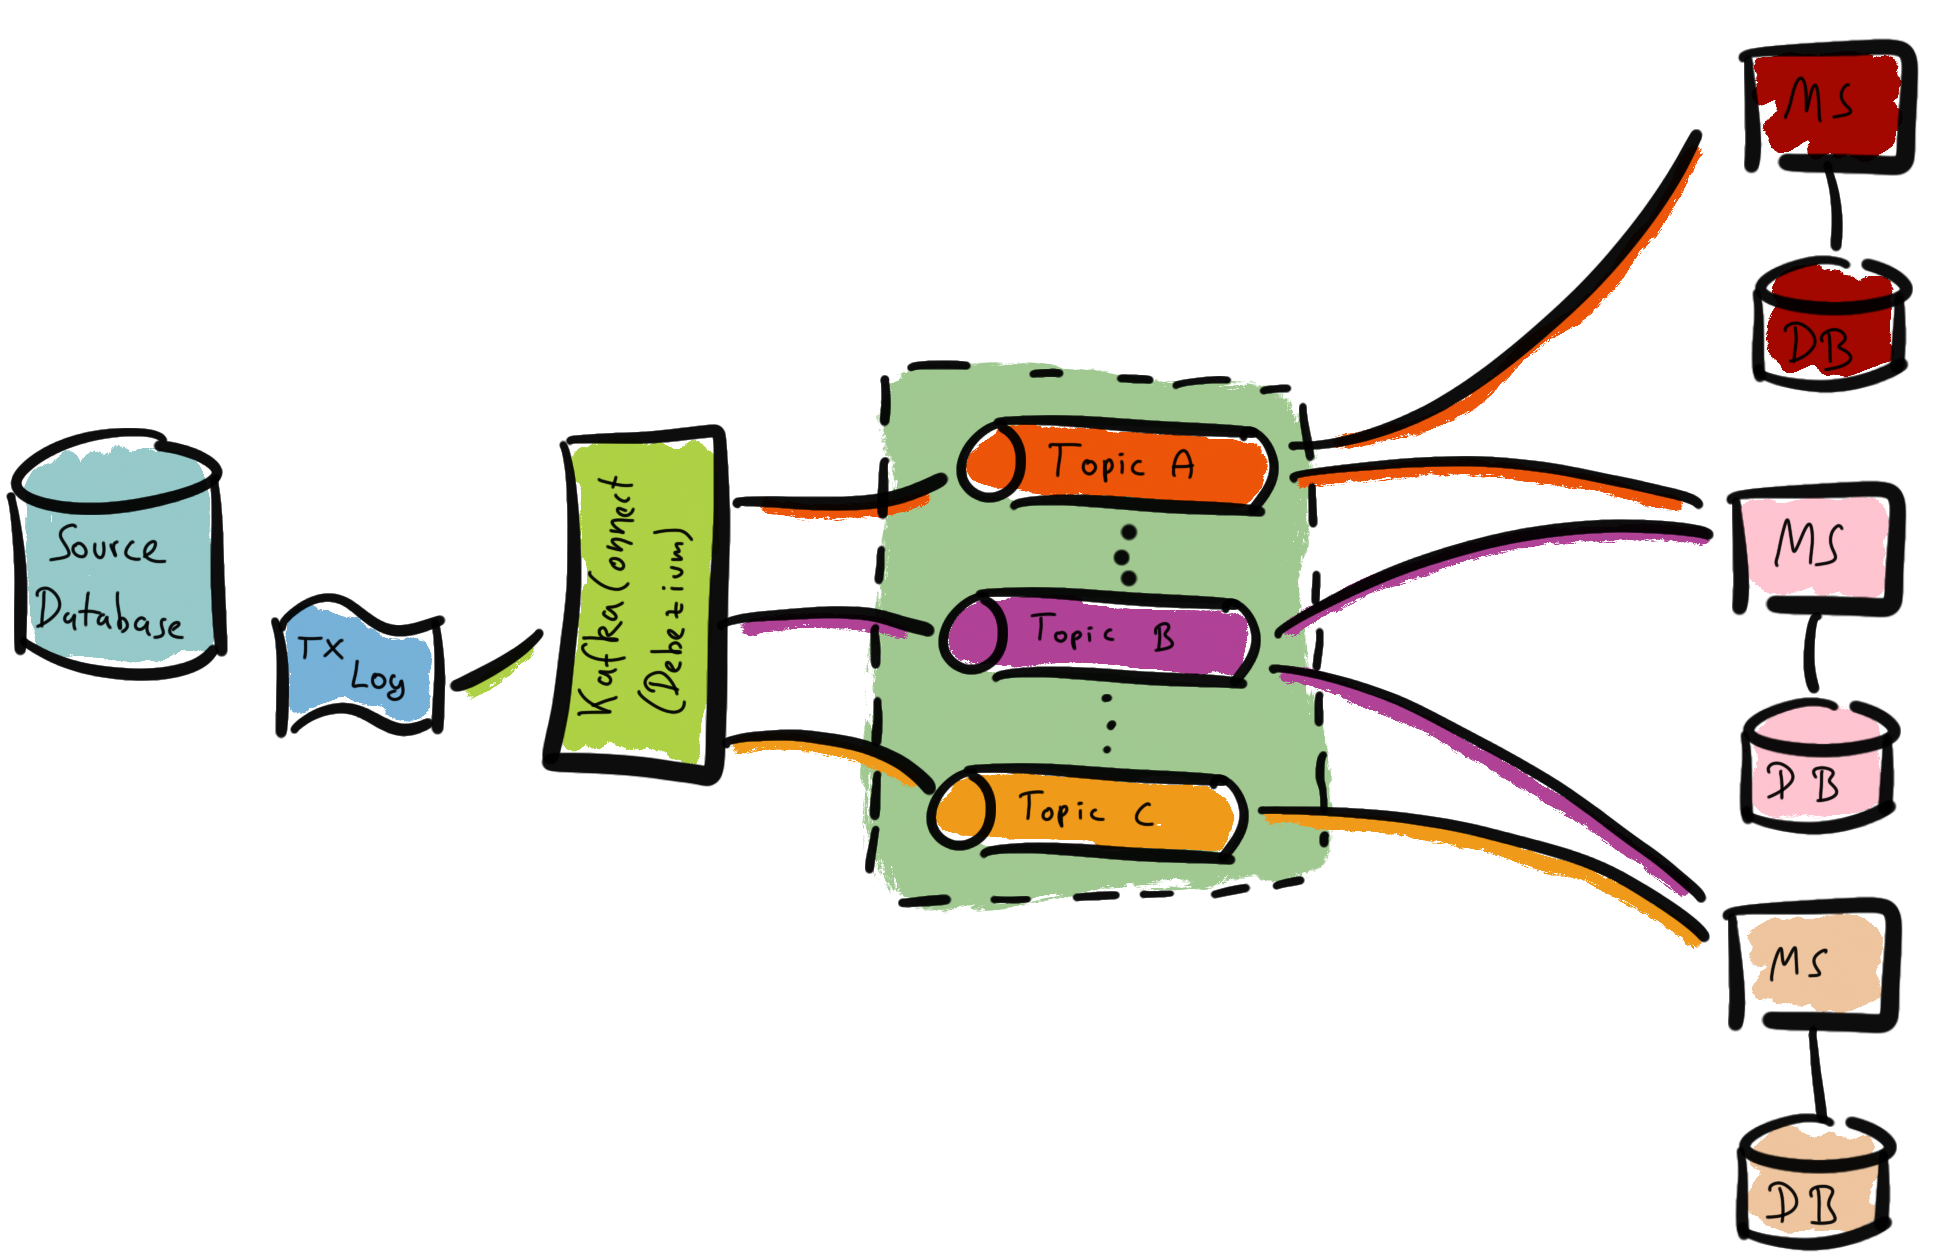 Source
Database
TX
Log
Kafka Connect
(Debezium)
Topic A
Topic B
Topic C
MS
DB
MS
DB
MS
DB